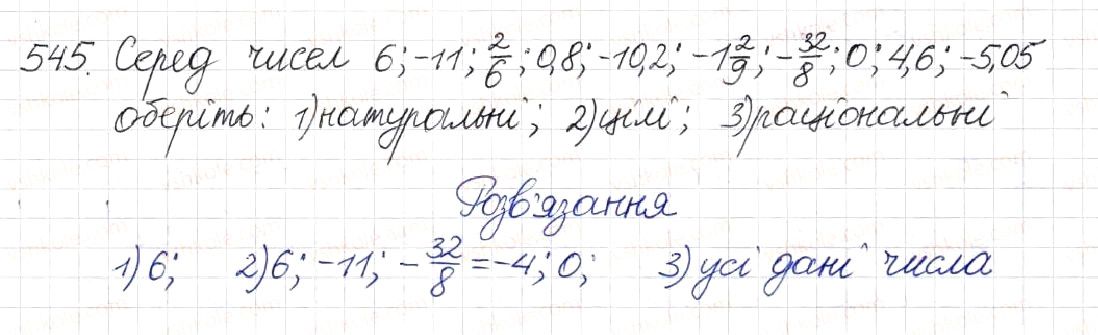 545. Серед чисел 6; -11; 2/6; 0,8; -10,2; -1 2/9; -32/8; 0; 4,6; -5,05
оберіть: 1) натуральні; 2) цілі; 3) раціональні
Розв'язання
1) 6; 2) 6; -11; -32/8 = -4; 0; 3) усі дані числа